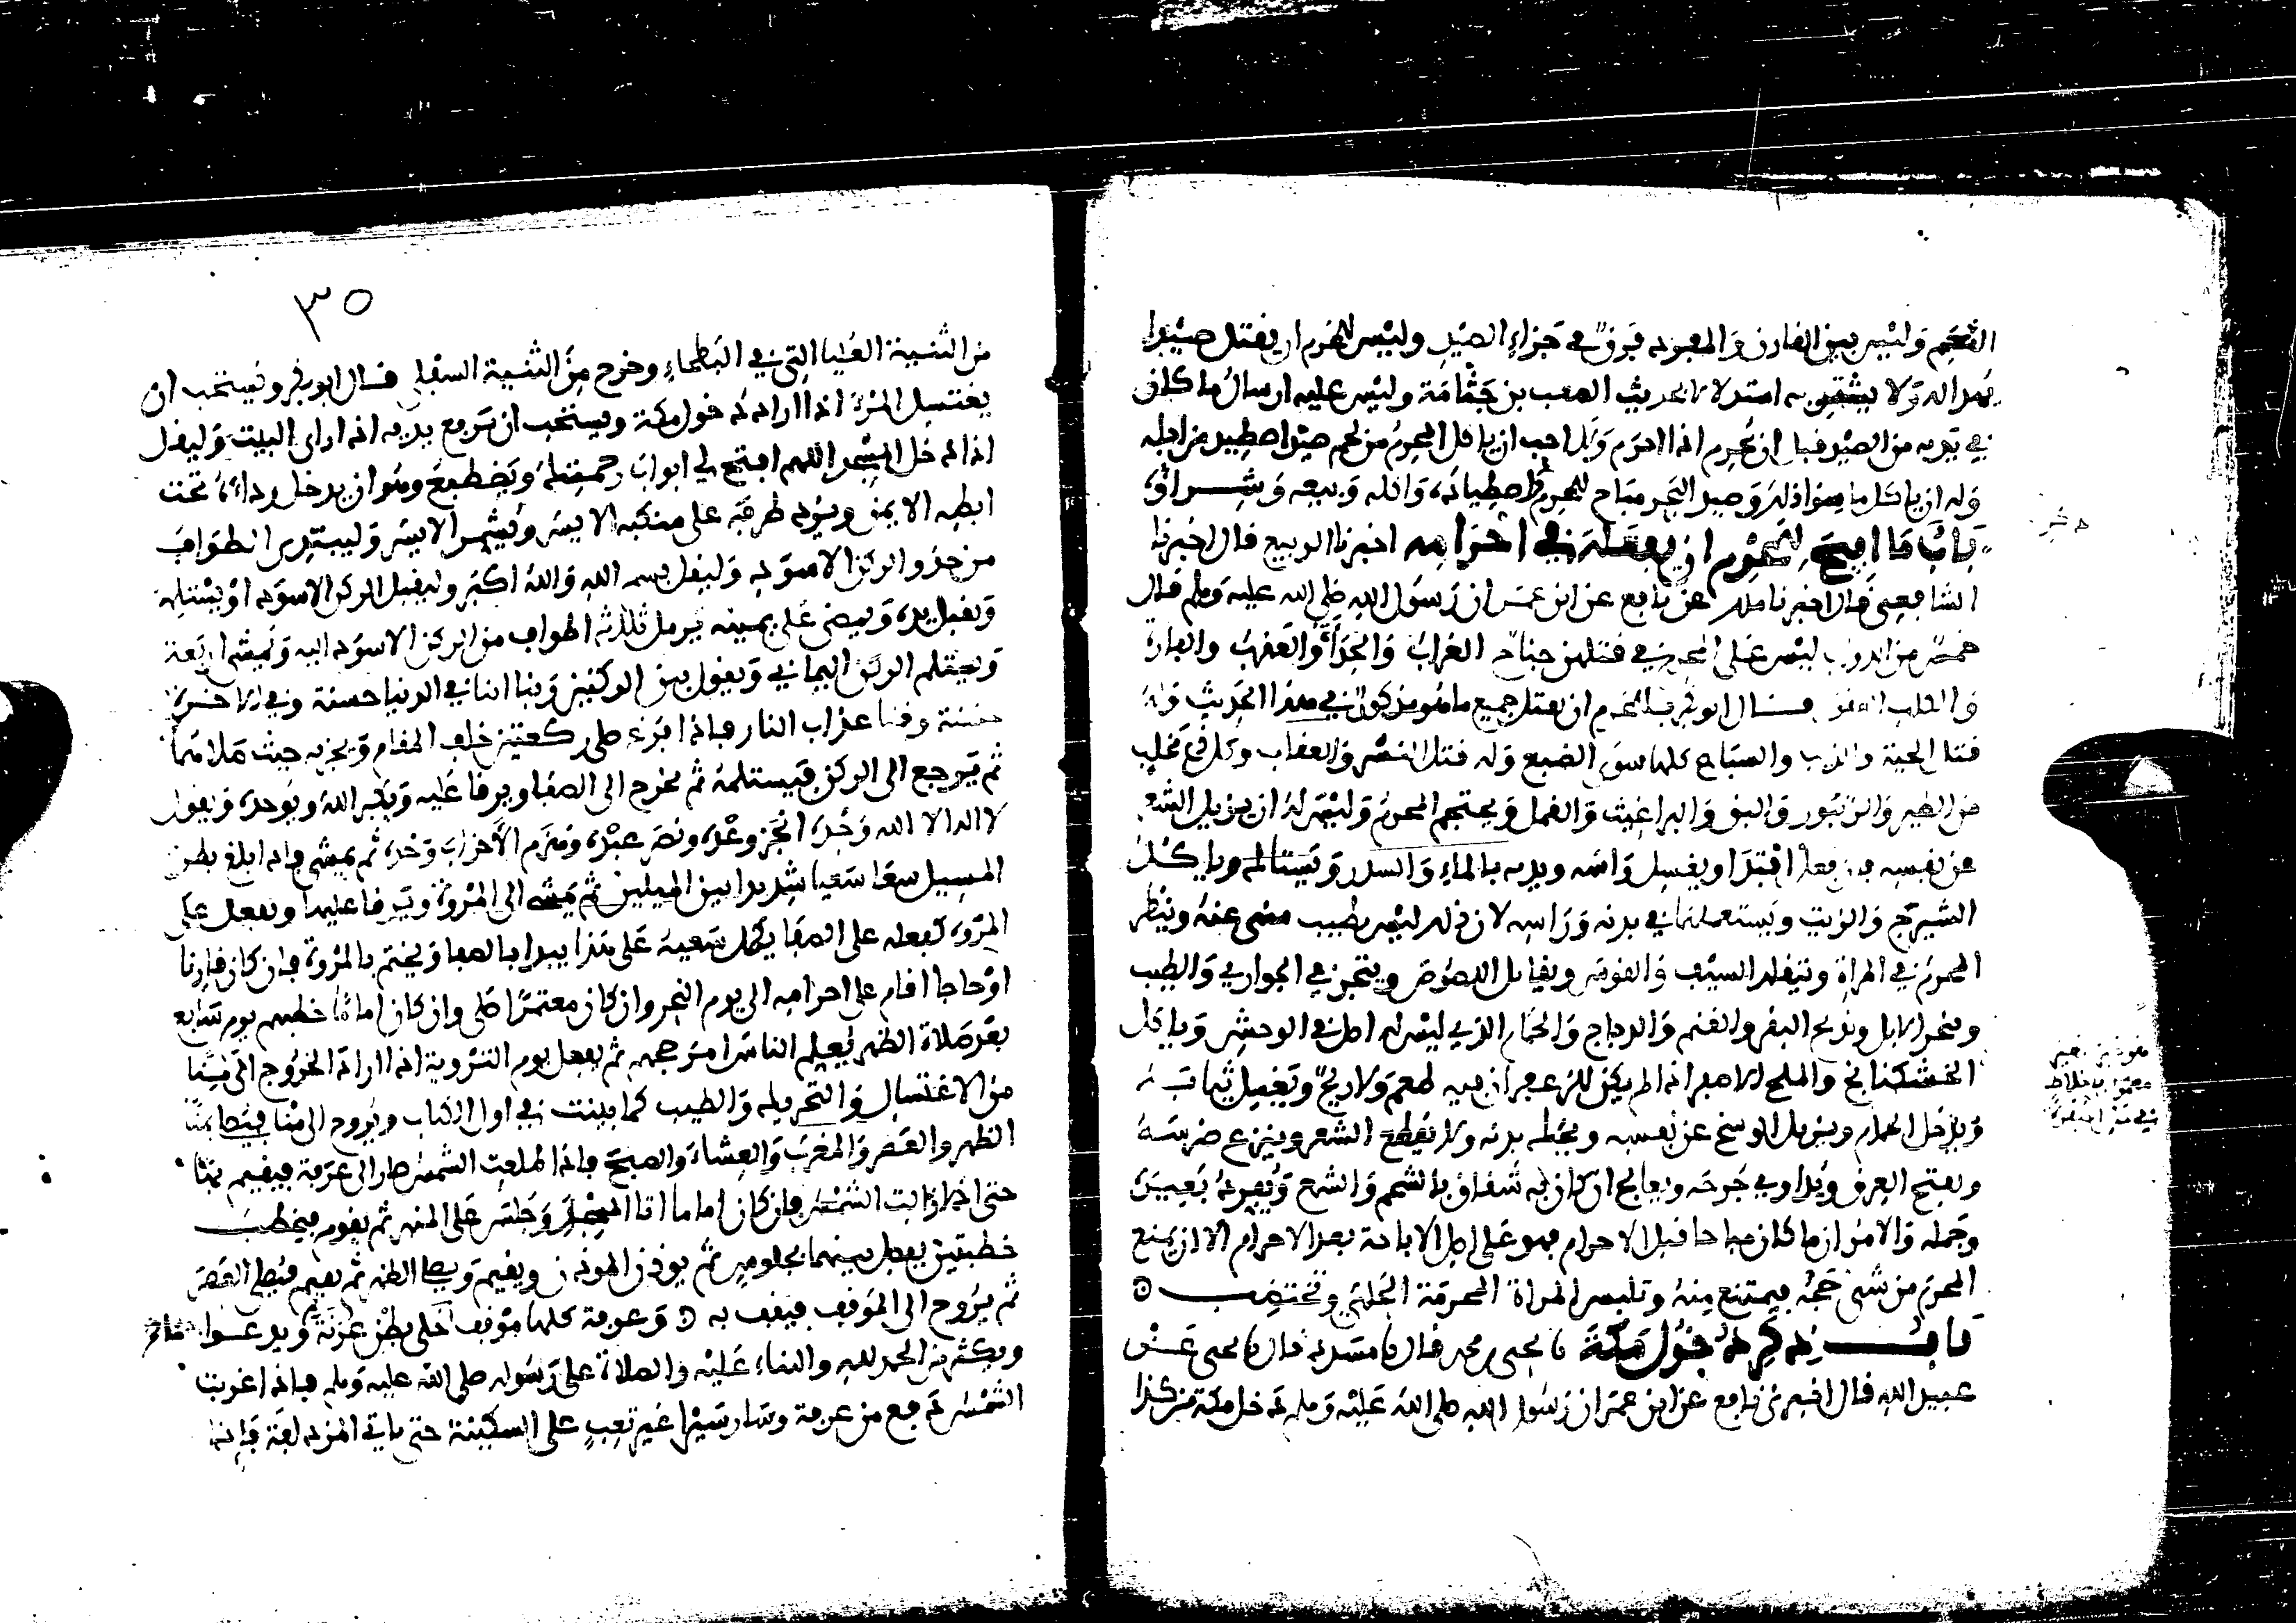 القيم وليس بين القارن والمفرد فرق في جزاء الصيد وليس للمحرم ان يقتل صيدا
يهدا له ولا يشتريه استدلالا بحديث الصعب بن جثامة وليس عليه ارسال ما كان
في يديه من الصيد قبل ان يحرم اذا احرم ولا احب ان ياكل المحرم من لحم صيد اصطيد من اجله
وله ان ياكل ما سوا ذلك وصيد البحر مباح للمحرم اصطياده واكله وبيعه وشراؤه
باب ما ابيح للمحرم ان يفعله في احرامه اخبرنا الربيع قال اخبرنا
الشافعي قال اخبرنا ملك عن نافع عن ابن عمر ان رسول الله صلى الله عليه وسلم قال
خمس من الدواب ليس على المحرم في قتلهن جناح الغراب والحدأة والعقرب والفارة
والكلب العقور قال ابو بكر فللمحرم ان يقتل جميع ما هو مذكور في هذا الحديث وله
قتل الحية والذيب والسباع كلها سوى الضبع وله قتل النسر والعقاب وكل ذي مخلب
من الطير والزنبور والبق والبراغيث والقمل ويحتجم المحرم وليس له ان يزيل الشعر
عن نفسه فان فعل افتدا ويغسل راسه ويديه بالماء والسدر ويستاك وياكل
الشيرج والزيت ويستعملهما في بدنه وراسه لان ذلك ليس بطيب منهى عنه وينظر
المحرم في المراة ويتقلد السيف والقوس ويقاتل اللصوص ويتجر في الجواري والطيب
وينحر الابل ويذبح البقر والغنم والدجاج والحمام الذي ليس له اصل في الوحش وياكل
الخشكنانج والملح الاصفر اذا لم يكن للزعفران فيه طعم ولا ريح ويغسل ثيابه
ويدخل الحمام ويزيل الوسخ عن نفسه ويحك بدنه ولا يقطع الشعر وينزع ضرسه
ويفتح العرق ويداوي جرحه ويعالج ان كان به شقاق بالشحم والشمع ويقرد بعيره
وجمله والامر ان ما كان مباحا قبل الاحرام فهو على اصل الاباحة بعد الاحرام الا ان يمنع
المحرم من شي حجة فيمتنع منه وتلبس المراة المحرمة الحلي وتختضب ۞
باب ذكر دخول مكة نا يحيى بن محمد قال نا مسدد قال نا يحيى عن
عبيد الله قال اخبرني نافع عن ابن عمر ان رسول الله صلى الله عليه وسلم دخل مكة من كدا
٣٥
من الثنية العليا التي في البطحاء وخرج من الثنية السفلى قال ابو بكر ونستحب ان
يغتسل المرء اذا اراد دخول مكة ويستحب ان يرفع يديه اذا راى البيت وليقل
اذا دخل المسجد اللهم افتح لي ابواب رحمتك ويضطبع وهو ان يدخل رداءه تحت
ابطه الايمن ويرد طرفه على منكبه الايسر وليبتدى الطواف
من حذو الركن الاسود وليقل بسم الله والله اكبر وليقبل الركن الاسود او يستلمه
ويقبل يده ويمضي على يمينه يرمل ثلثة اطواف من الركن الاسود اليه ويمشي اربعة
ويستلم الركن اليماني ويقول بين الركنين ربنا اتنا في الدنيا حسنة وفي الاخرة
حسنة وقنا عذاب النار فاذا فرغ صلى ركعتين خلف المقام ويجزيه حيث صلاهما
ثم يرجع الى الركن فيستلمه ثم يخرج الى الصفا ويرقا عليه ويكبر الله ويوحده ويقول
لا اله الا الله وحده انجز وعده ونصر عبده وهزم الاحزاب وحده ثم يمشي فاذا بلغ بطن
المسيل سعا سعيا شديدا بين الميلين ثم يمشي الى المروة ويرقا عليها ويفعل على
المروة كفعله على الصفا يكمل سعيه على هذا يبدا بالصفا ويختم بالمروة فان كان قارنا
او حاجا اقام على احرامه الى يوم النحر وان كان معتمرا حل وان كان اماما خطبهم يوم سابع
بعد صلاة الظهر يعلم الناس امر حجهم ثم يفعل يوم التروية اذا اراد الخروج الى منا
من الاغتسال والتجريد والطيب كما بينت في اول الكتاب ويروح الى منا فيصلي بمنا
الظهر والعصر والمغرب والعشاء والصبح فاذا طلعت الشمس صار الى عرفة فيقيم بها
حتى اذا زالت الشمس فان كان اماما اتا المسجد وجلس على المنبر ثم يقوم فيخطب
خطبتين يفصل بينهما بجلوس ثم يوذن الموذن ويقيم ويصلي الظهر ثم يقيم فيصلي العصر
ثم يروح الى الموقف فيقف به ۞ وعرفة كلها موقف خلى بطن عرنة ويدعوا
ويكثر من الحمد لله والثناء عليه والصلاة على رسوله صلى الله عليه وسلم فاذا غربت
الشمس دفع من عرفة وسار سيرا غير تعب على السكينة حتى ياتي المزدلفة فاذا